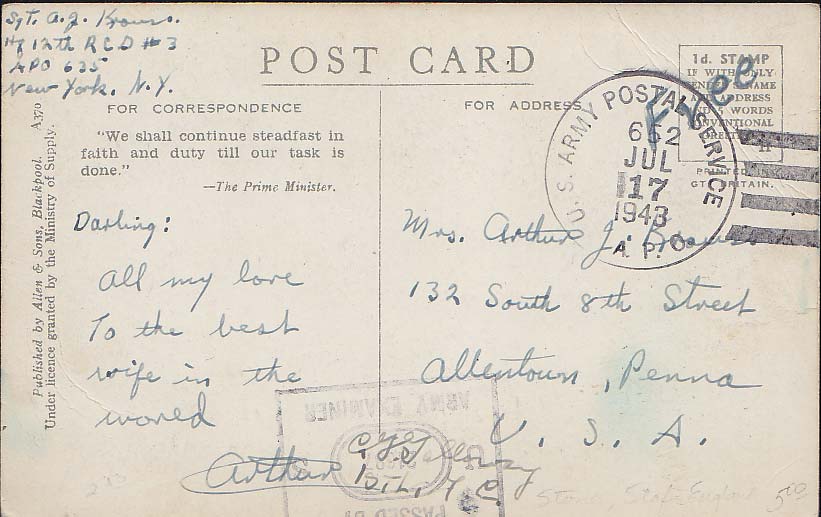 Sgt. A. J. Kraus.
Hq 12th R C D #3
APO 635
New York. N.Y.
POST CARD
FOR CORRESPONDENCE
FOR ADDRESS
"We shall continue steadfast in
faith and duty till our task is
done."
—The Prime Minister.
Published by Allen & Sons, Blackpool. A370
Under licence granted by the Ministry of Supply.
1d. STAMP
IF WITH ONLY
Free
PRINTED IN
GT. BRITAIN.
U.S. ARMY POSTAL SERVICE
652
JUL
17
1943
A.P.O.
Darling:
All my love
To the best
wife in the
world
Arthur
Mrs. Arthur J. Kraus
132 South 8th Street
Allentown, Penna
U. S. A.
ARMY EXAMINER
PASSED BY